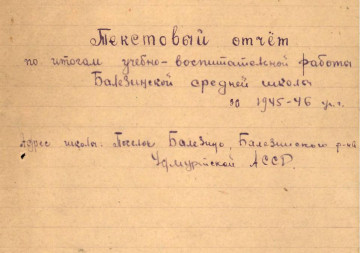 Текстовый отчёт
по итогам учебно-воспитательной работы
Балезинской средней школы
за 1945-46 уч. г.
Адрес школы: Поселок Балезино, Балезинского р-на
Удмуртской АССР.